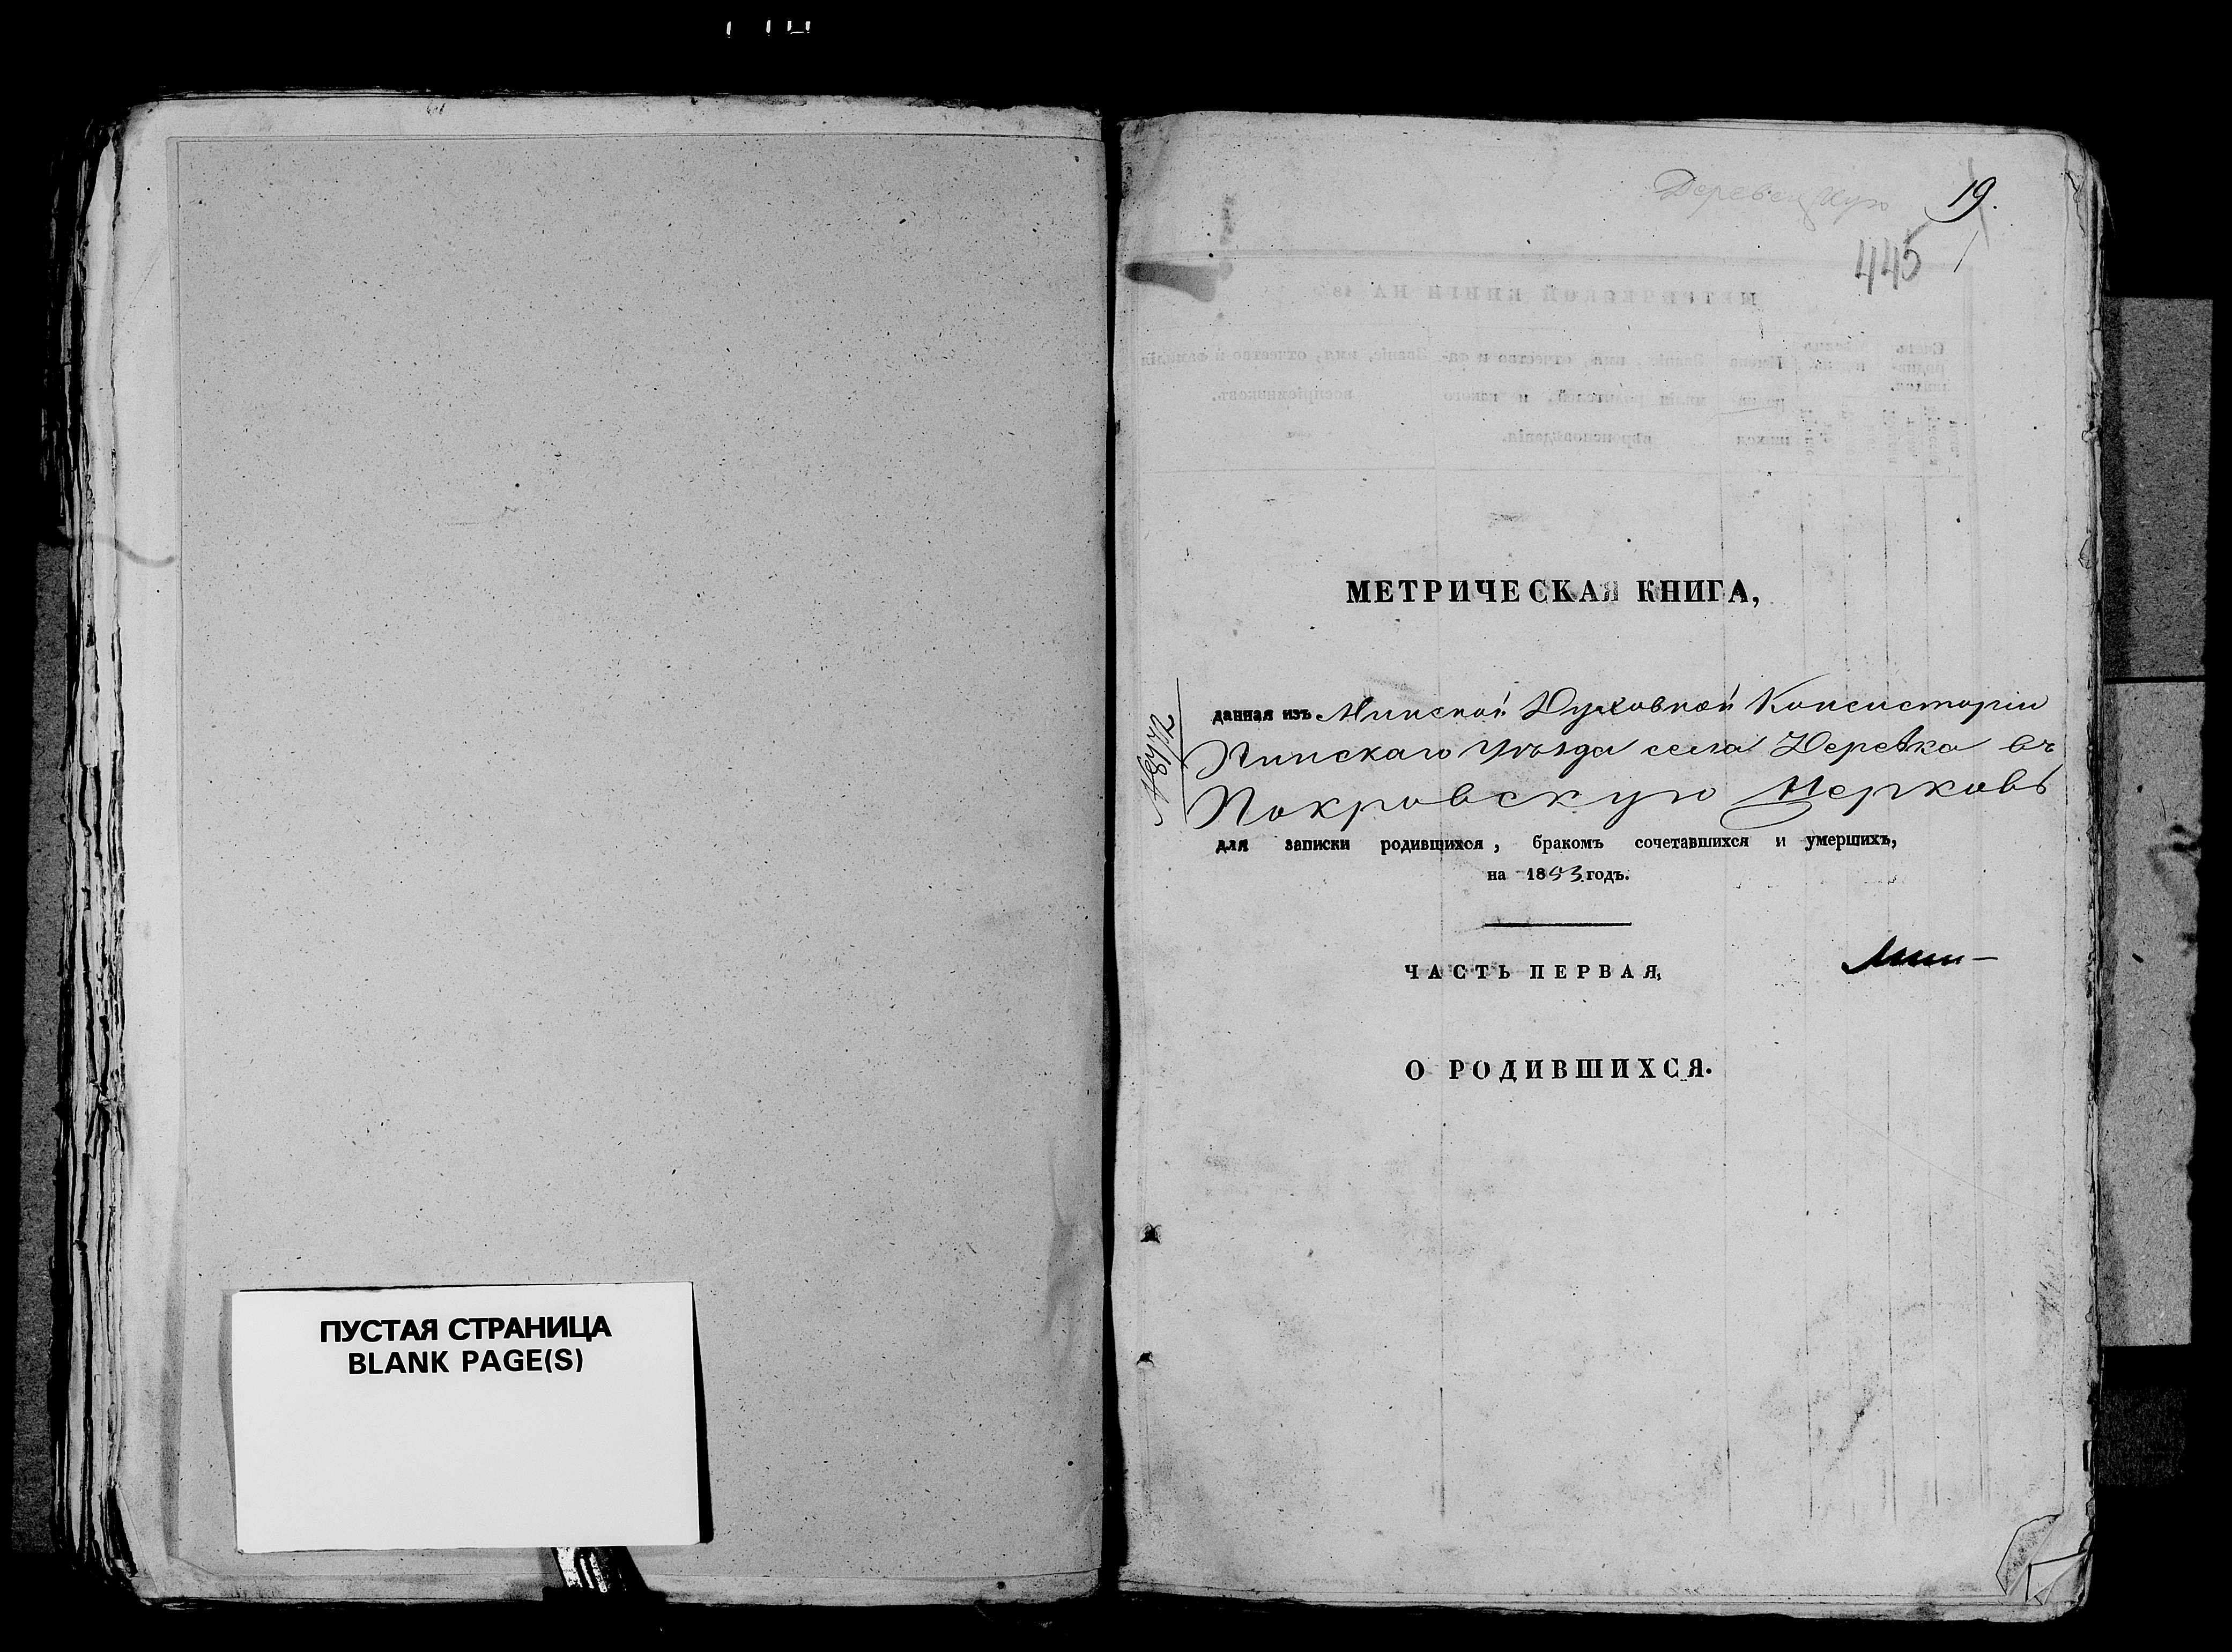 ПУСТАЯ СТРАНИЦА
BLANK PAGE(S)
19.
445
МЕТРИЧЕСКАЯ КНИГА,
данная изъ Минской Духовной Консисторіи
Пинскаго уѣзда села Деревка въ
Покровскую Церковь
для записки родившихся, бракомъ сочетавшихся и умершихъ,
на 1853 годъ.
ЧАСТЬ ПЕРВАЯ,
О РОДИВШИХСЯ.